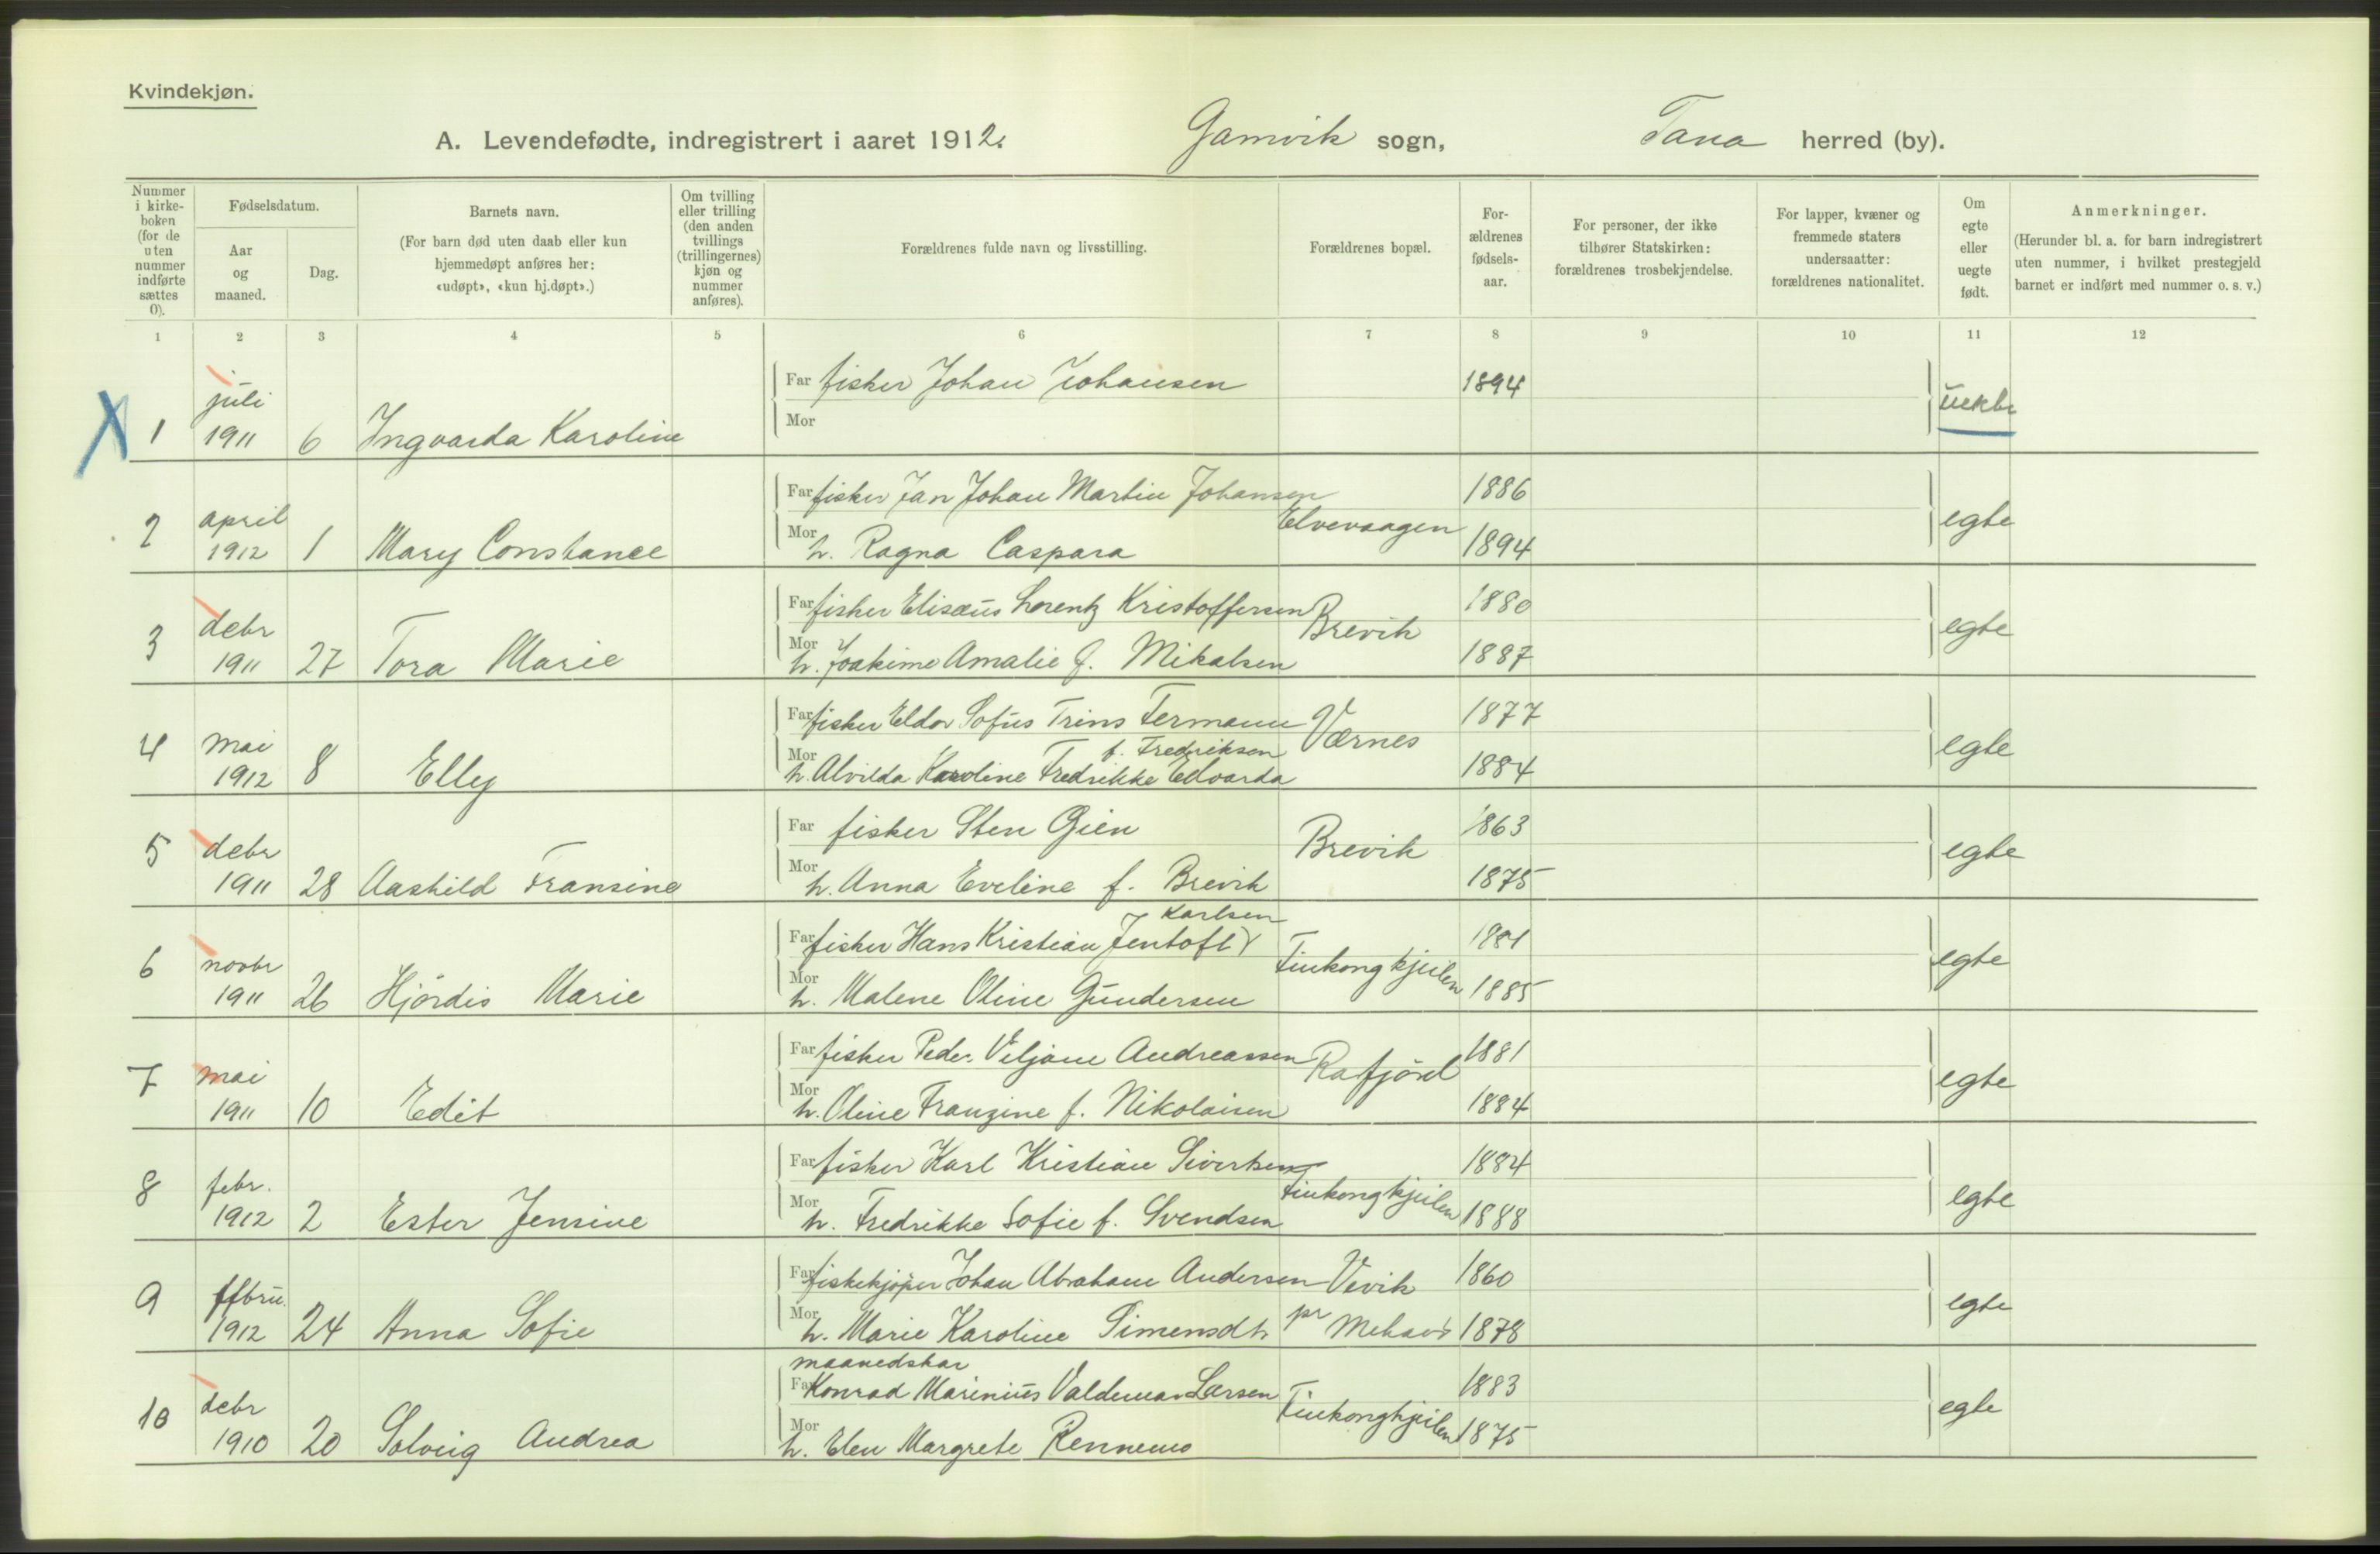 Kvindekjøn.
A. Levendefødte, indregistrert i aaret 1912. Gamvik sogn, Tana herred (by).
Nummer i kirke-boken (for de uten nummer indførte sættes 0).
Fødselsdatum.
Aar og maaned.
Dag.
Barnets navn.
(For barn død uten daab eller kun hjemmedøpt anføres her: «udøpt», «kun hj.døpt».)
Om tvilling eller trilling (den anden tvillings (trillingernes) kjøn og nummer anføres).
Forældrenes fulde navn og livsstilling.
Forældrenes bopæl.
For-ældrenes fødsels-aar.
For personer, der ikke tilhører Statskirken: forældrenes trosbekjendelse.
For lapper, kvæner og fremmede staters undersaatter: forældrenes nationalitet.
Om egte eller uegte født.
Anmerkninger.
(Herunder bl. a. for barn indregistrert uten nummer, i hvilket prestegjeld barnet er indført med nummer o. s. v.)
1 2 3 4 5 6 7 8 9 10 11 12
juli
Far fisker Johan Johansen 1894
X 1 1911 6 Ingvarda Karoline Mor
Far fisker Jan Johan Martin Johansen 1886
2 april 1912 1 Mary Constance Elvevaagen egte
Mor h. Ragna Caspara 1894
Far fisker Elisæus Lorentz Kristoffersen 1880
3 debr 1911 27 Tora Marie Brevik egte
Mor h. Joakime Amalie f. Mikalsen 1887
Far fisker Eldor Sofus Trins Fermann 1877
4 mai 1912 8 Elly Værnes egte
f. Fredriksen
Mor h. Alvilda Karoline Fredrikke Edvarda 1884
Far fisker Sten Gien 1863
5 debr 1911 28 Aashild Fransine Brevik egte
Mor h. Anna Eveline f. Brevik 1875
Karlsen
Far fisker Hans Kristian Jentoft 1881
6 novbr 1911 26 Hjördis Marie Finkongkjeilen egte
Mor h. Malene Oline Gundersen 1885
Far fisker Peder Viljam Andreassen 1881
7 mai 1911 10 Edit Rafjörd egte
Mor h. Oline Franzine f. Nikolaisen 1884
Far fisker Karl Kristian Sivertsen 1884
8 febr. 1912 2 Ester Jensine Finkongkjeilen egte
Mor h. Fredrikke Sofie f. Svendsen 1888
Far fiskekjöper Johan Abraham Andersen Vevik 1860
9 1912 24 Anna Sofie egte
Mor h. Marie Karoline Simensdtr pr Mehavn 1878
maanedskar
Far Konrad Marinius Valdemar Larsen 1883
10 debr 1910 20 Solveig Andrea Finkongkjeilen egte
Mor h. Elen Margrete Rennemo 1875